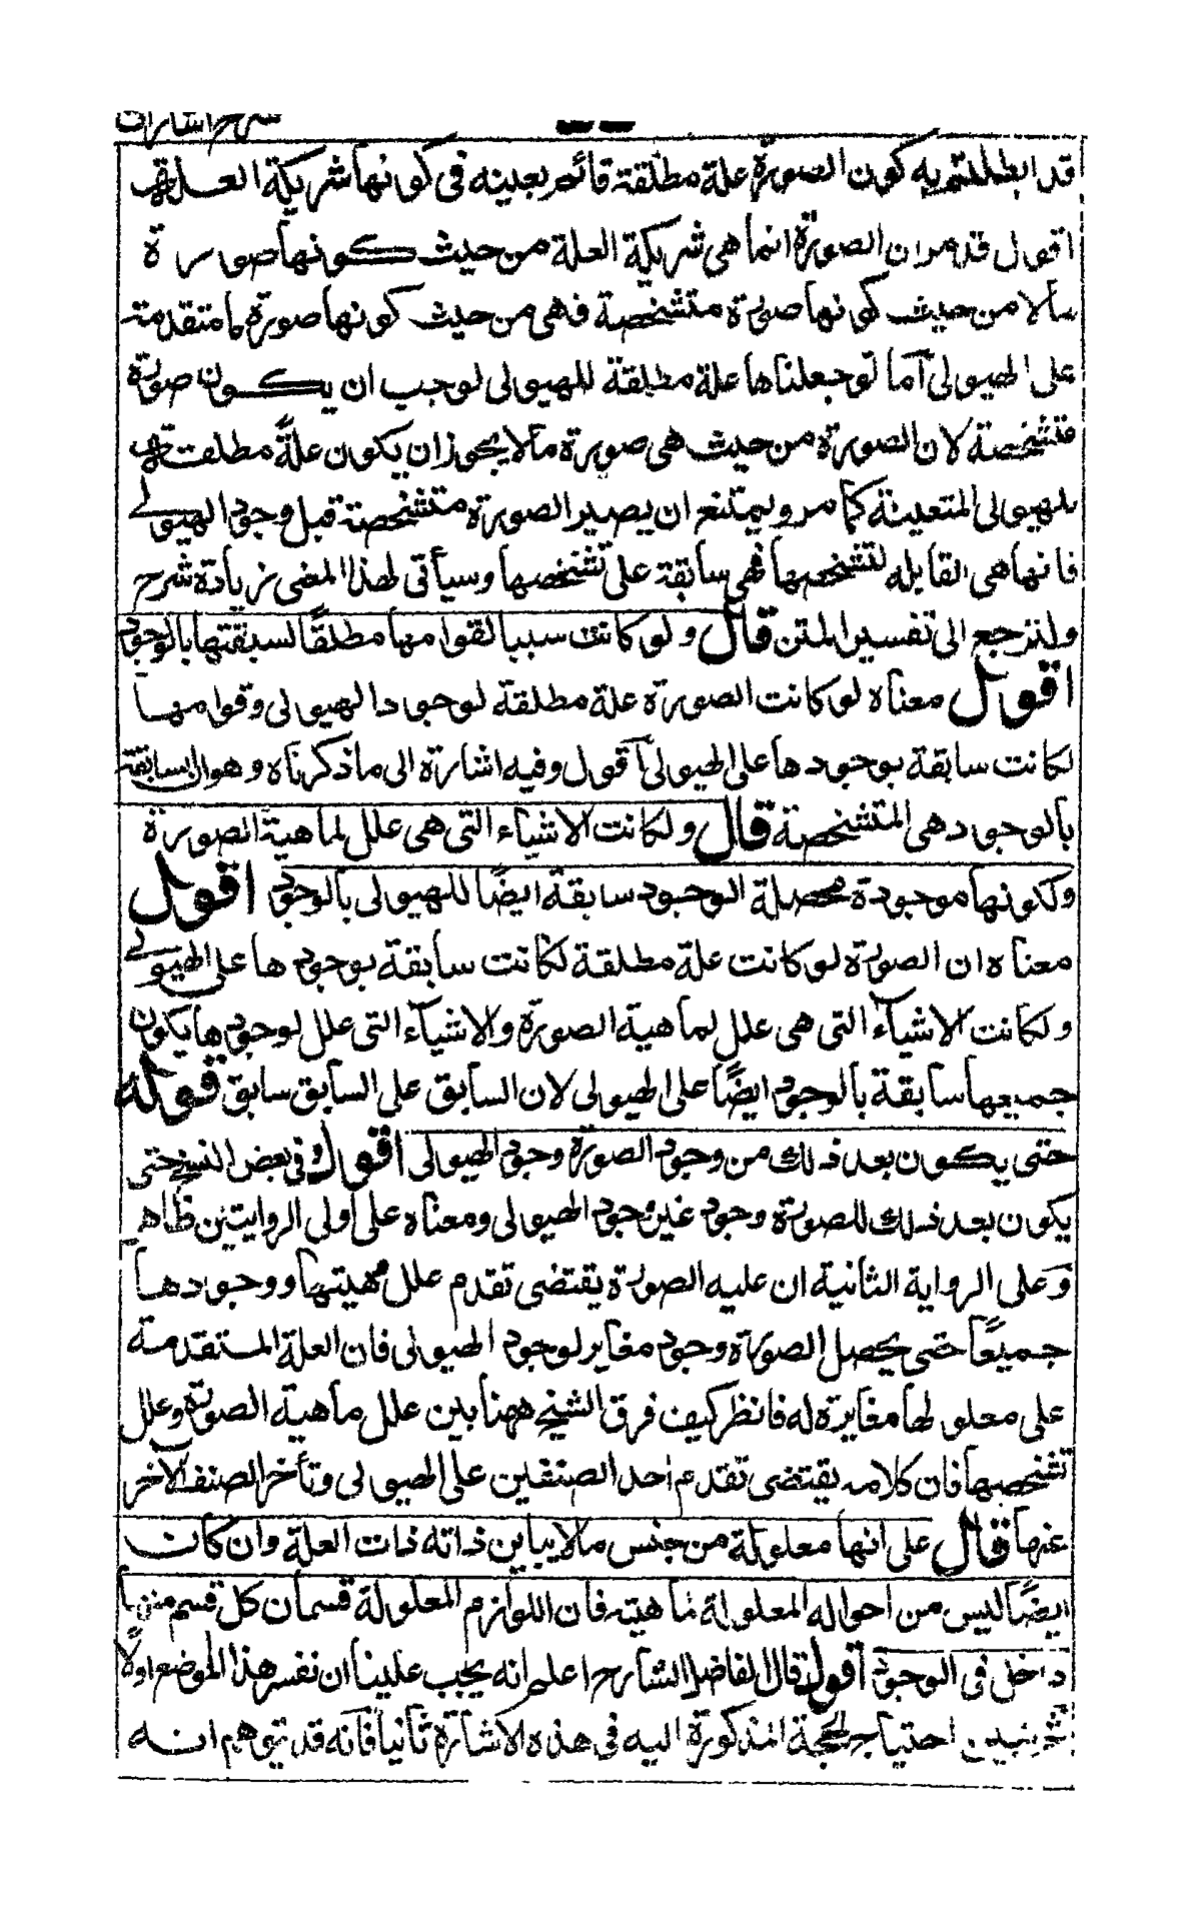 شرح اشارات
قد ابطلتم به كون الصورة علة مطلقة قائم بعينه فى كونها شريكة العلة
اقول قد مر ان الصورة انما هى شريكة العلة من حيث كونها صورة
ما لا من حيث كونها صورة متشخصة فهى من حيث كونها صورة ما متقدمة
على الهيولى آما لو جعلناها علة مطلقة للهيولى لوجب ان يكون صورة
متشخصة لان الصورة من حيث هى صورة ما لا يجوز ان يكون علةً مطلقة
للهيولى المتعينة كما مر ويمتنع ان يصير الصورة متشخصة قبل وجود الهيولى
فانها هى القابله لتشخصها فهى سابقة على تشخصها وسيأتى لهذا المعنى زيادة شرح
ولنرجع الى تفسير المتن قال ولو كانت سببا لقوامها مطلقًا لسبقتها بالوجود
اقول معناه لو كانت الصورة علة مطلقة لوجود الهيولى وقوامها
لكانت سابقة بوجودها على الهيولى آقول وفيه اشارة الى ما ذكرناه وهو ان السابقة
بالوجود هى المتشخصة قال ولكانت الاشياء التى هى علل لماهية الصورة
ولكونها موجودة محصلة الوجود سابقة ايضًا للهيولى بالوجود اقول
معناه ان الصورة لو كانت علة مطلقة لكانت سابقة بوجودها على الهيولى
ولكانت الاشيآء التى هى علل لماهية الصورة والاشيآء التى علل لوجودها يكون
جميعها سابقة بالوجود ايضًا على الهيولى لان السابق على السابق سابق قوله
حتى يكون بعد ذلك من وجود الصورة وجود الهيولى اقول وفى بعض النسخ حتى
يكون بعد ذلك للصورة وجود غير وجود الهيولى ومعناه على اولى الروايتين ظاهر
وعلى الرواية الثانية ان عليه الصورة يقتضى تقدم علل مهيتها ووجودها
جميعًا حتى يحصل الصورة وجود مغاير لوجود الهيولى فان العلة المتقدمة
على معلولها مغايرة له فانظر كيف فرق الشيخ ههنا بين علل ماهية الصورة وعلل
تشخصها فان كلامه يقتضى تقدم احد الصنفين على الهيولى وتأخر الصنف الآخر
عنها قال على انها معلولة من جنس ما لا يباين ذاته ذات العلة وان كانت
ايضًا ليس من احواله المعلولة لماهيته فان اللوازم المعلولة قسمان كل قسم منها
داخل فى الوجود اقول قال الفاضل الشارح اعلم انه يجب علينا ان نفسر هذا الموضع اولًا
احتياج الحجة المذكورة اليه فى هذه الاشارة ثانيا فآنه قد يتوهم انه